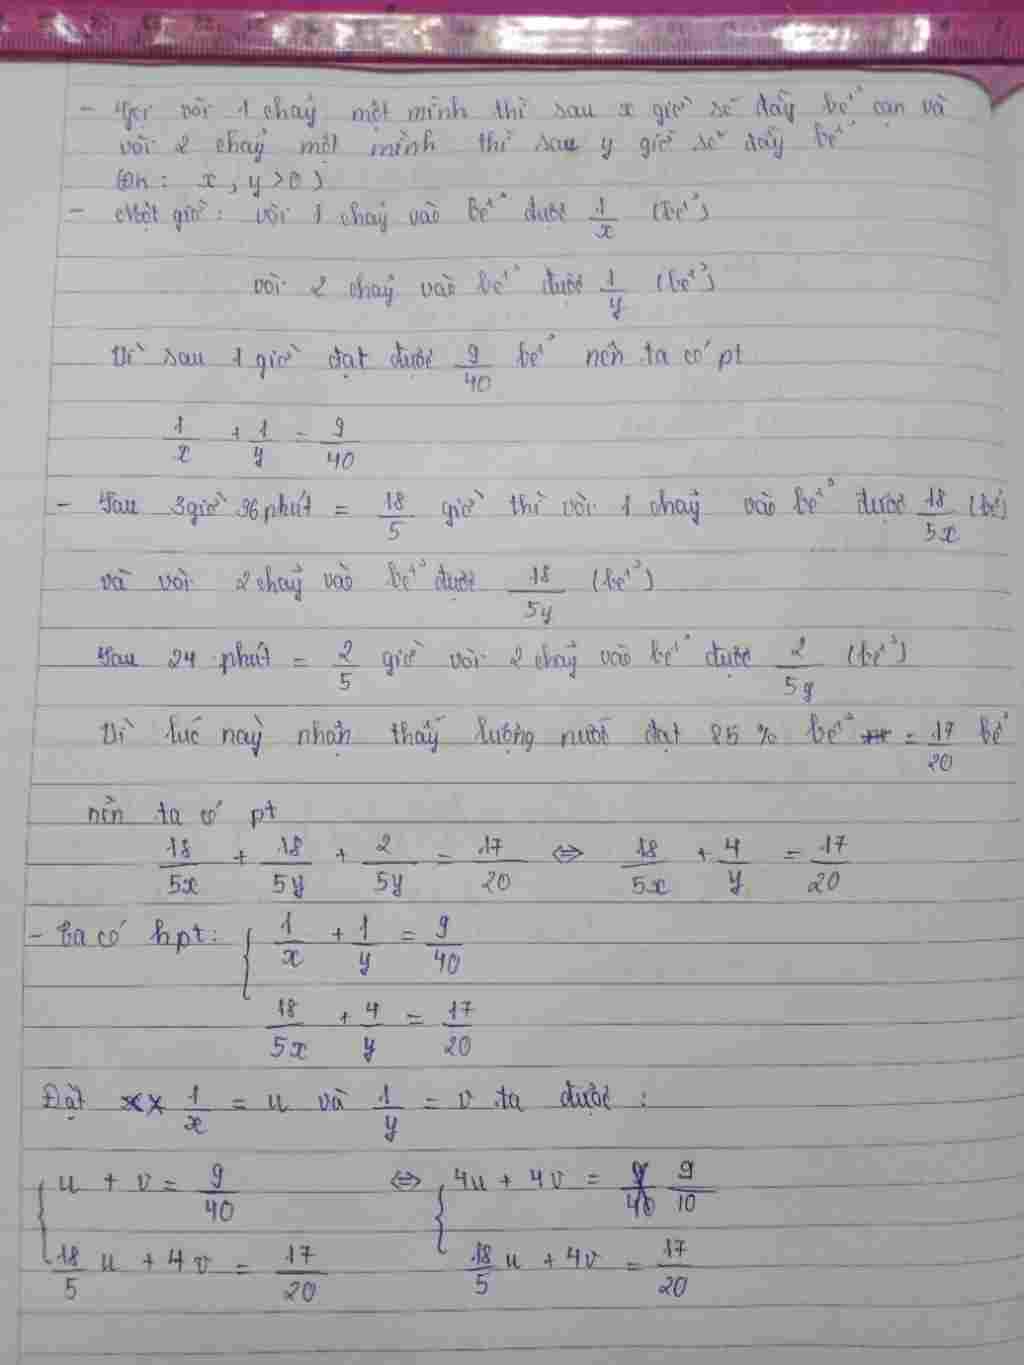 - Gọi vòi 1 chảy một mình thì sau x giờ sẽ đầy bể cạn và
vòi 2 chảy một mình thì sau y giờ sẽ đầy bể
(Đk: x, y > 0)
- Một giờ: vòi 1 chảy vào bể được 1/x (bể)
vòi 2 chảy vào bể được 1/y (bể)
Vì sau 1 giờ đạt được 9/40 bể nên ta có pt
1/x + 1/y = 9/40
- Sau 3 giờ 36 phút = 18/5 giờ thì vòi 1 chảy vào bể được 18/5x (bể)
và vòi 2 chảy vào bể được 18/5y (bể)
Sau 24 phút = 2/5 giờ vòi 2 chảy vào bể được 2/5y (bể)
Vì lúc này nhận thấy lượng nước đạt 85 % bể = 17/20 bể
nên ta có pt
18/5x + 18/5y + 2/5y = 17/20 ⇔ 18/5x + 4/y = 17/20
- Ta có hpt: { 1/x + 1/y = 9/40
18/5x + 4/y = 17/20
Đặt 1/x = u và 1/y = v ta được:
{ u + v = 9/40 ⇔ { 4u + 4v = 9/10
18/5 u + 4v = 17/20 18/5 u + 4v = 17/20